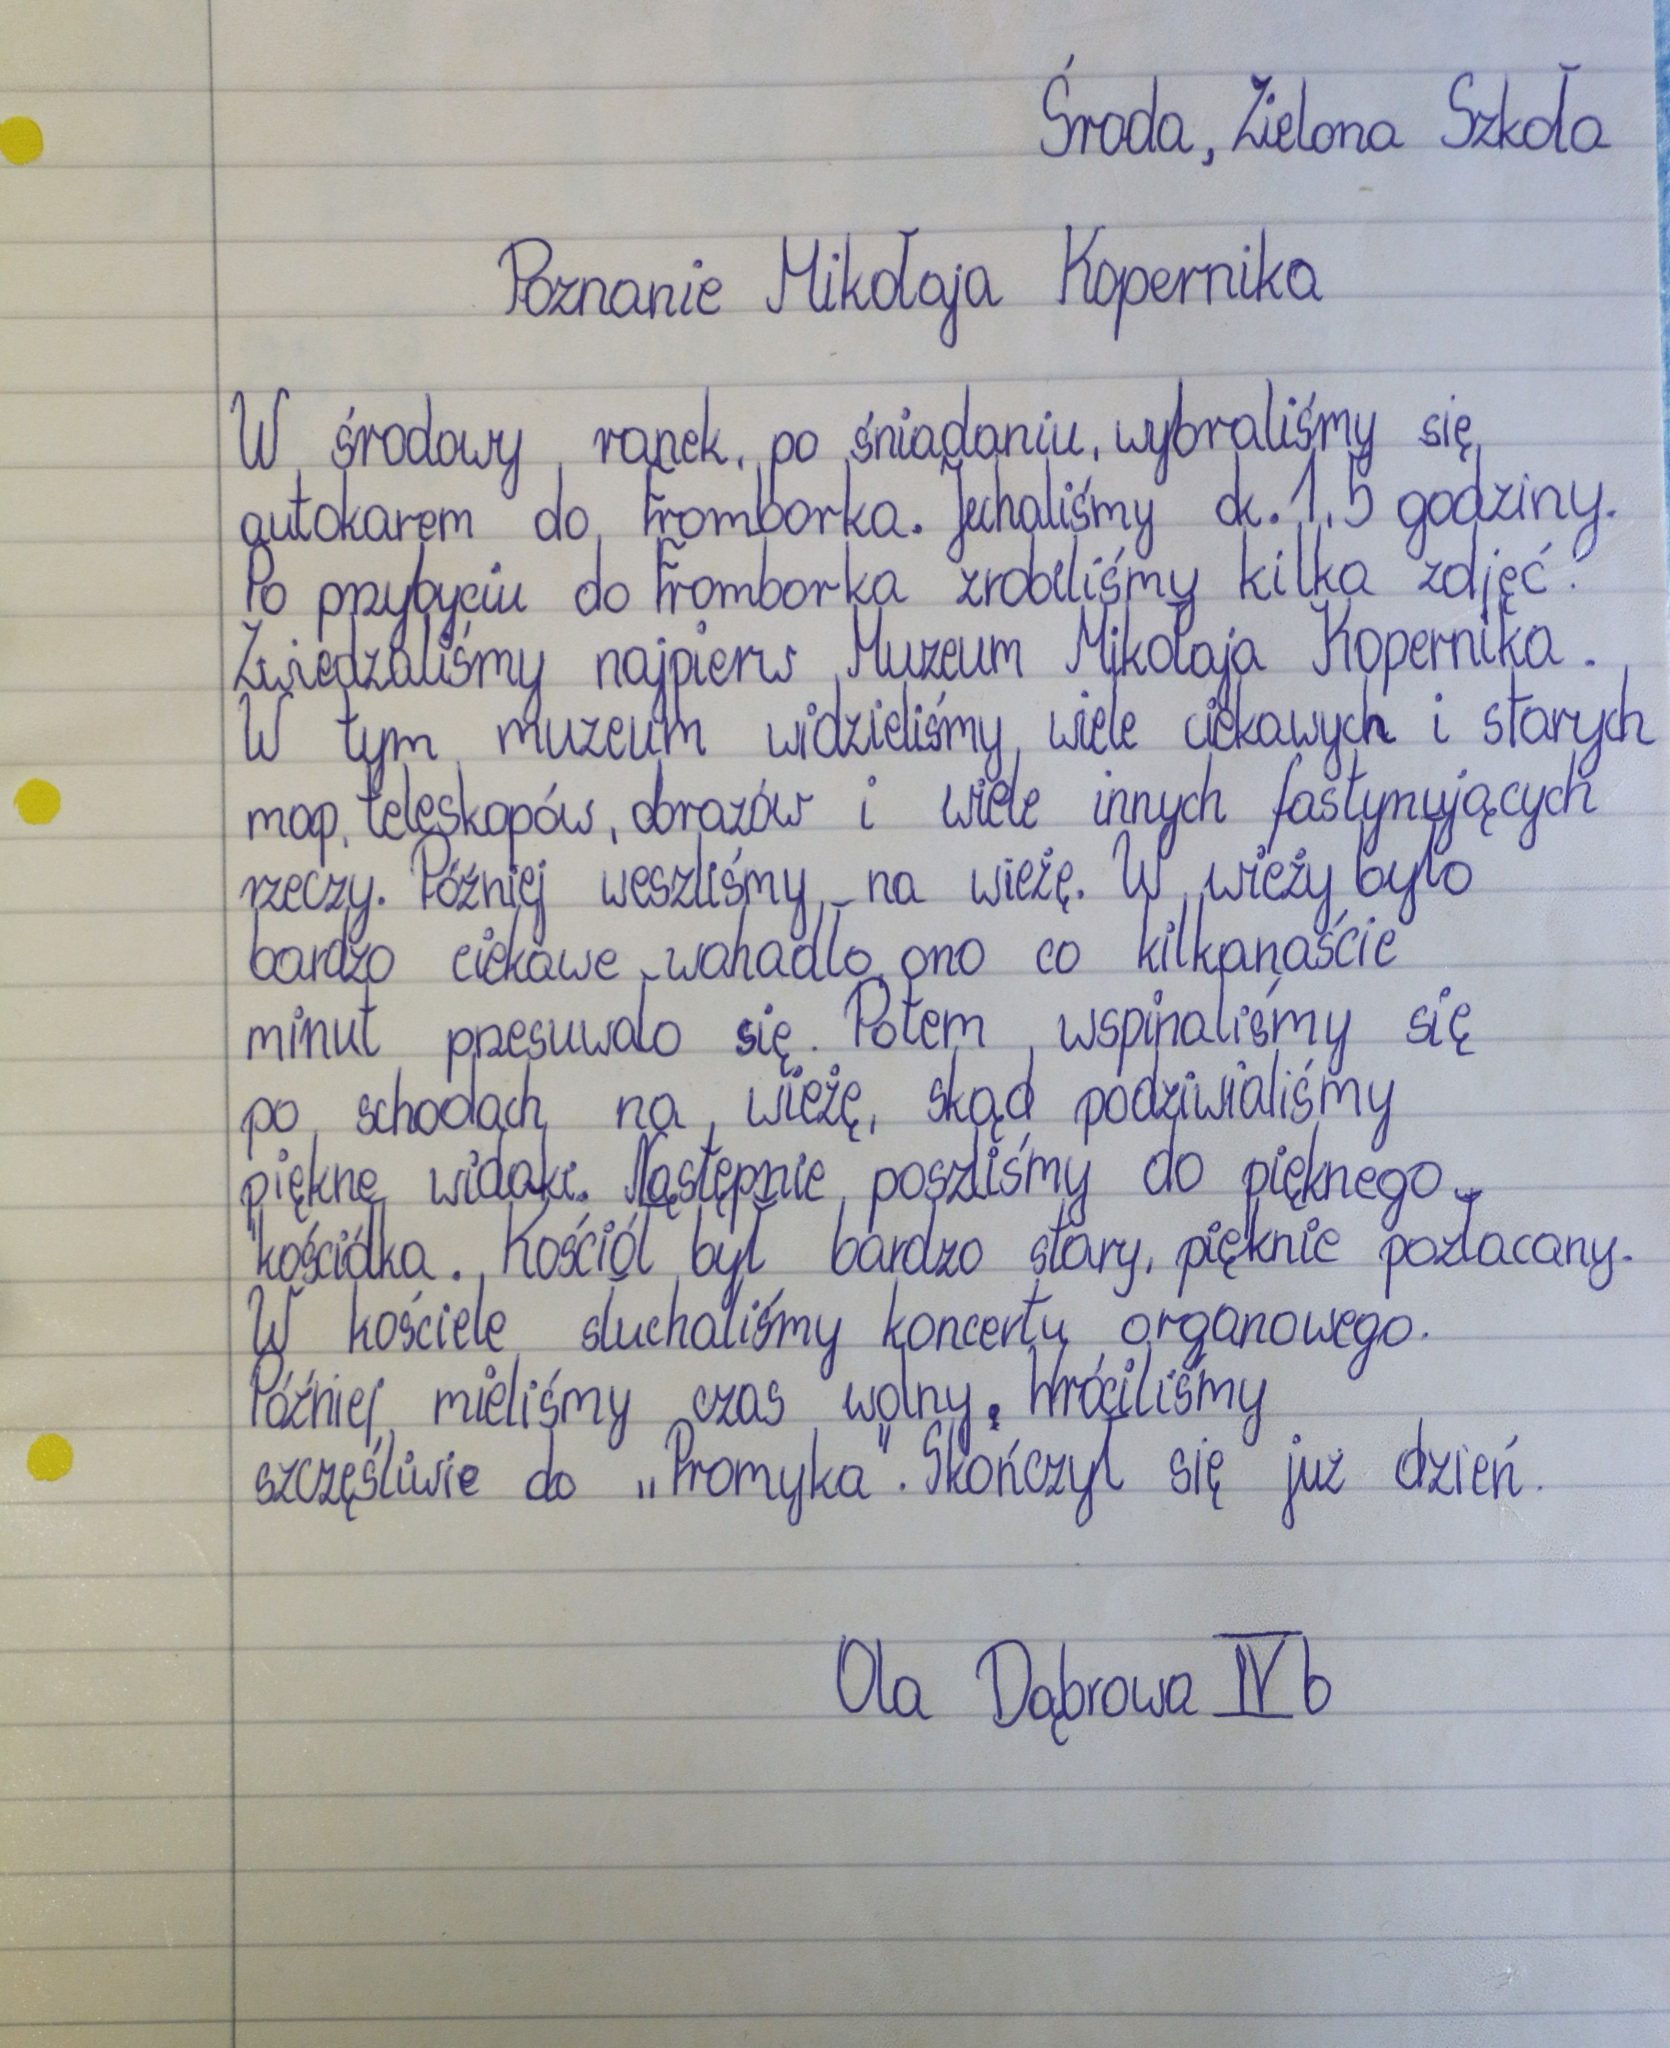 Środa, Zielona Szkoła
Poznanie Mikołaja Kopernika
W środowy ranek, po śniadaniu, wybraliśmy się
autokarem do Fromborka. Jechaliśmy ok. 1,5 godziny.
Po przybyciu do Fromborka zrobiliśmy kilka zdjęć.
Zwiedzaliśmy najpierw Muzeum Mikołaja Kopernika.
W tym muzeum widzieliśmy wiele ciekawych i starych
map, teleskopów, obrazów i wiele innych fastynujących
rzeczy. Później weszliśmy na wieżę. W wieży było
bardzo ciekawe wahadło, ono co kilkanaście
minut przesuwało się. Potem wspinaliśmy się
po schodach na wieżę, skąd podziwialiśmy
piękne widoki. Następnie poszliśmy do pięknego
kościółka. Kościół był bardzo stary, pięknie pozłacany.
W kościele słuchaliśmy koncertu organowego.
Później mieliśmy czas wolny. Wróciliśmy
szczęśliwie do „Promyka". Skończył się już dzień.
Ola Dąbrowa IV b